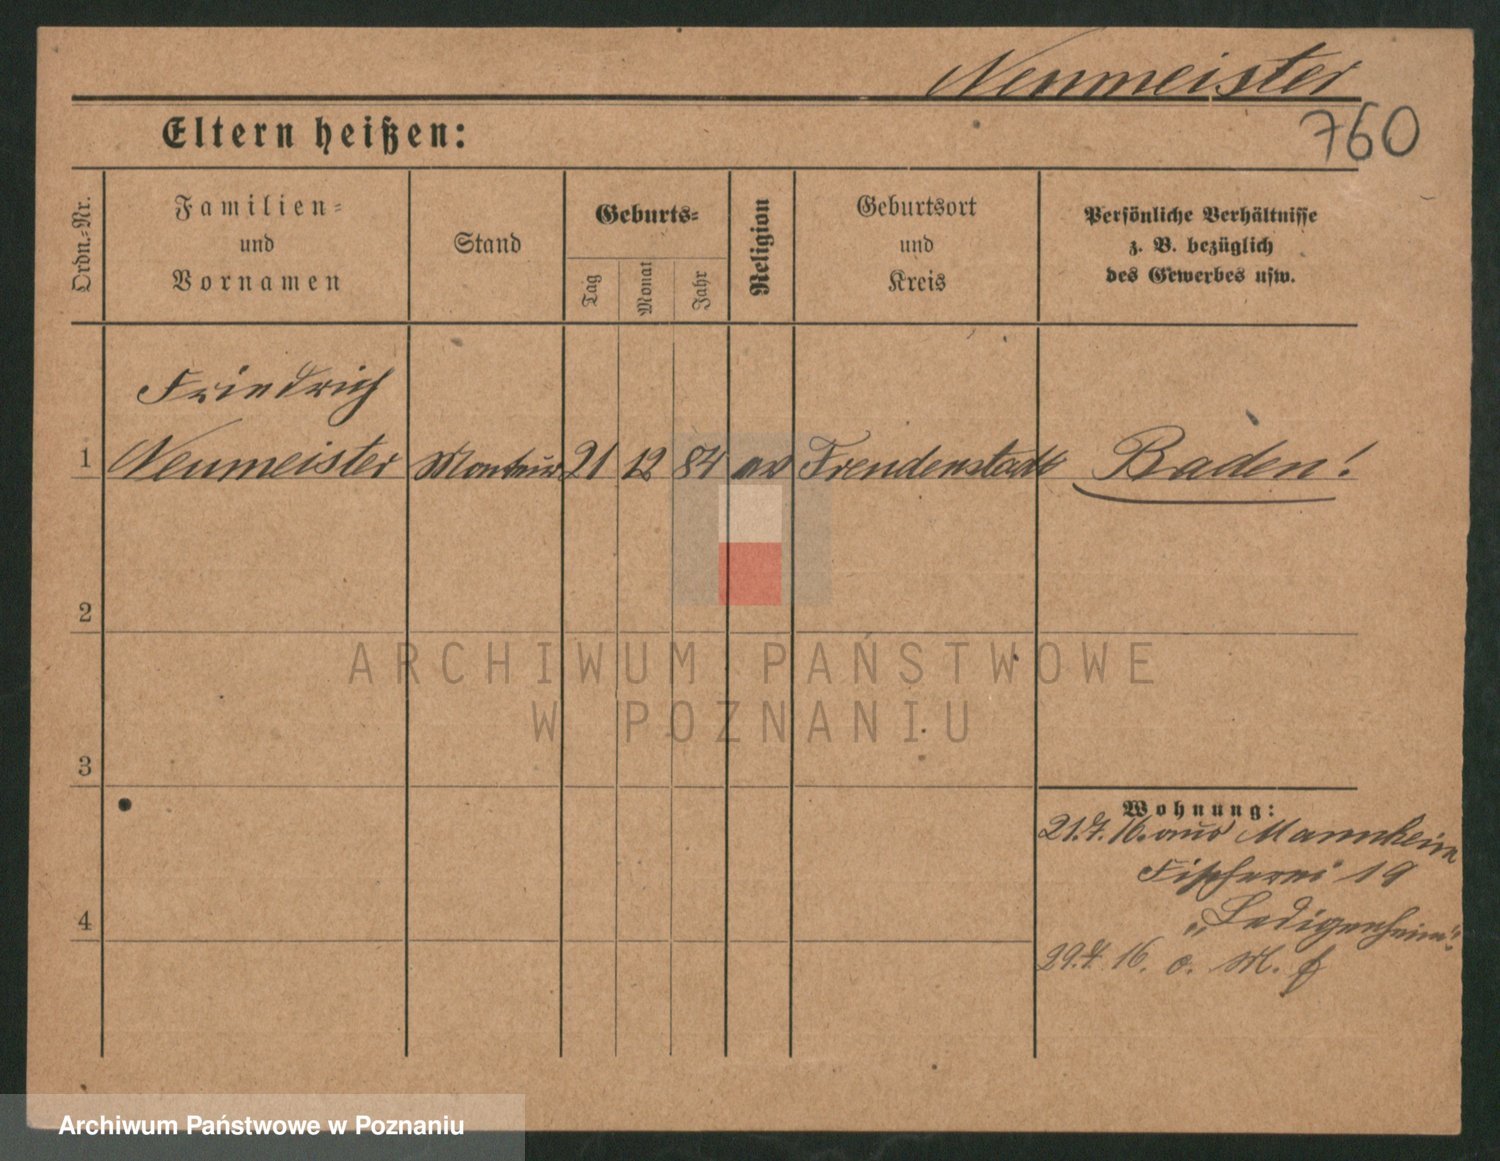 Neumeister
760
Eltern heißen:
Ordn.-Nr.
Familien-
und
Vornamen
Stand
Geburts-
Tag
Monat
Jahr
Religion
Geburtsort
und
Kreis
Persönliche Verhältnisse
z. B. bezüglich
des Gewerbes usw.
Friedrich
1 Neumeister Monteur 21 12 84 ev Freudenstadt Baden!
2
3
4
ARCHIWUM PAŃSTWOWE
W POZNANIU
Wohnung:
21.7.16. aus Mannheim
Fischerei 19
"Ledigenheim".
29.7.16. o. M.
Archiwum Państwowe w Poznaniu